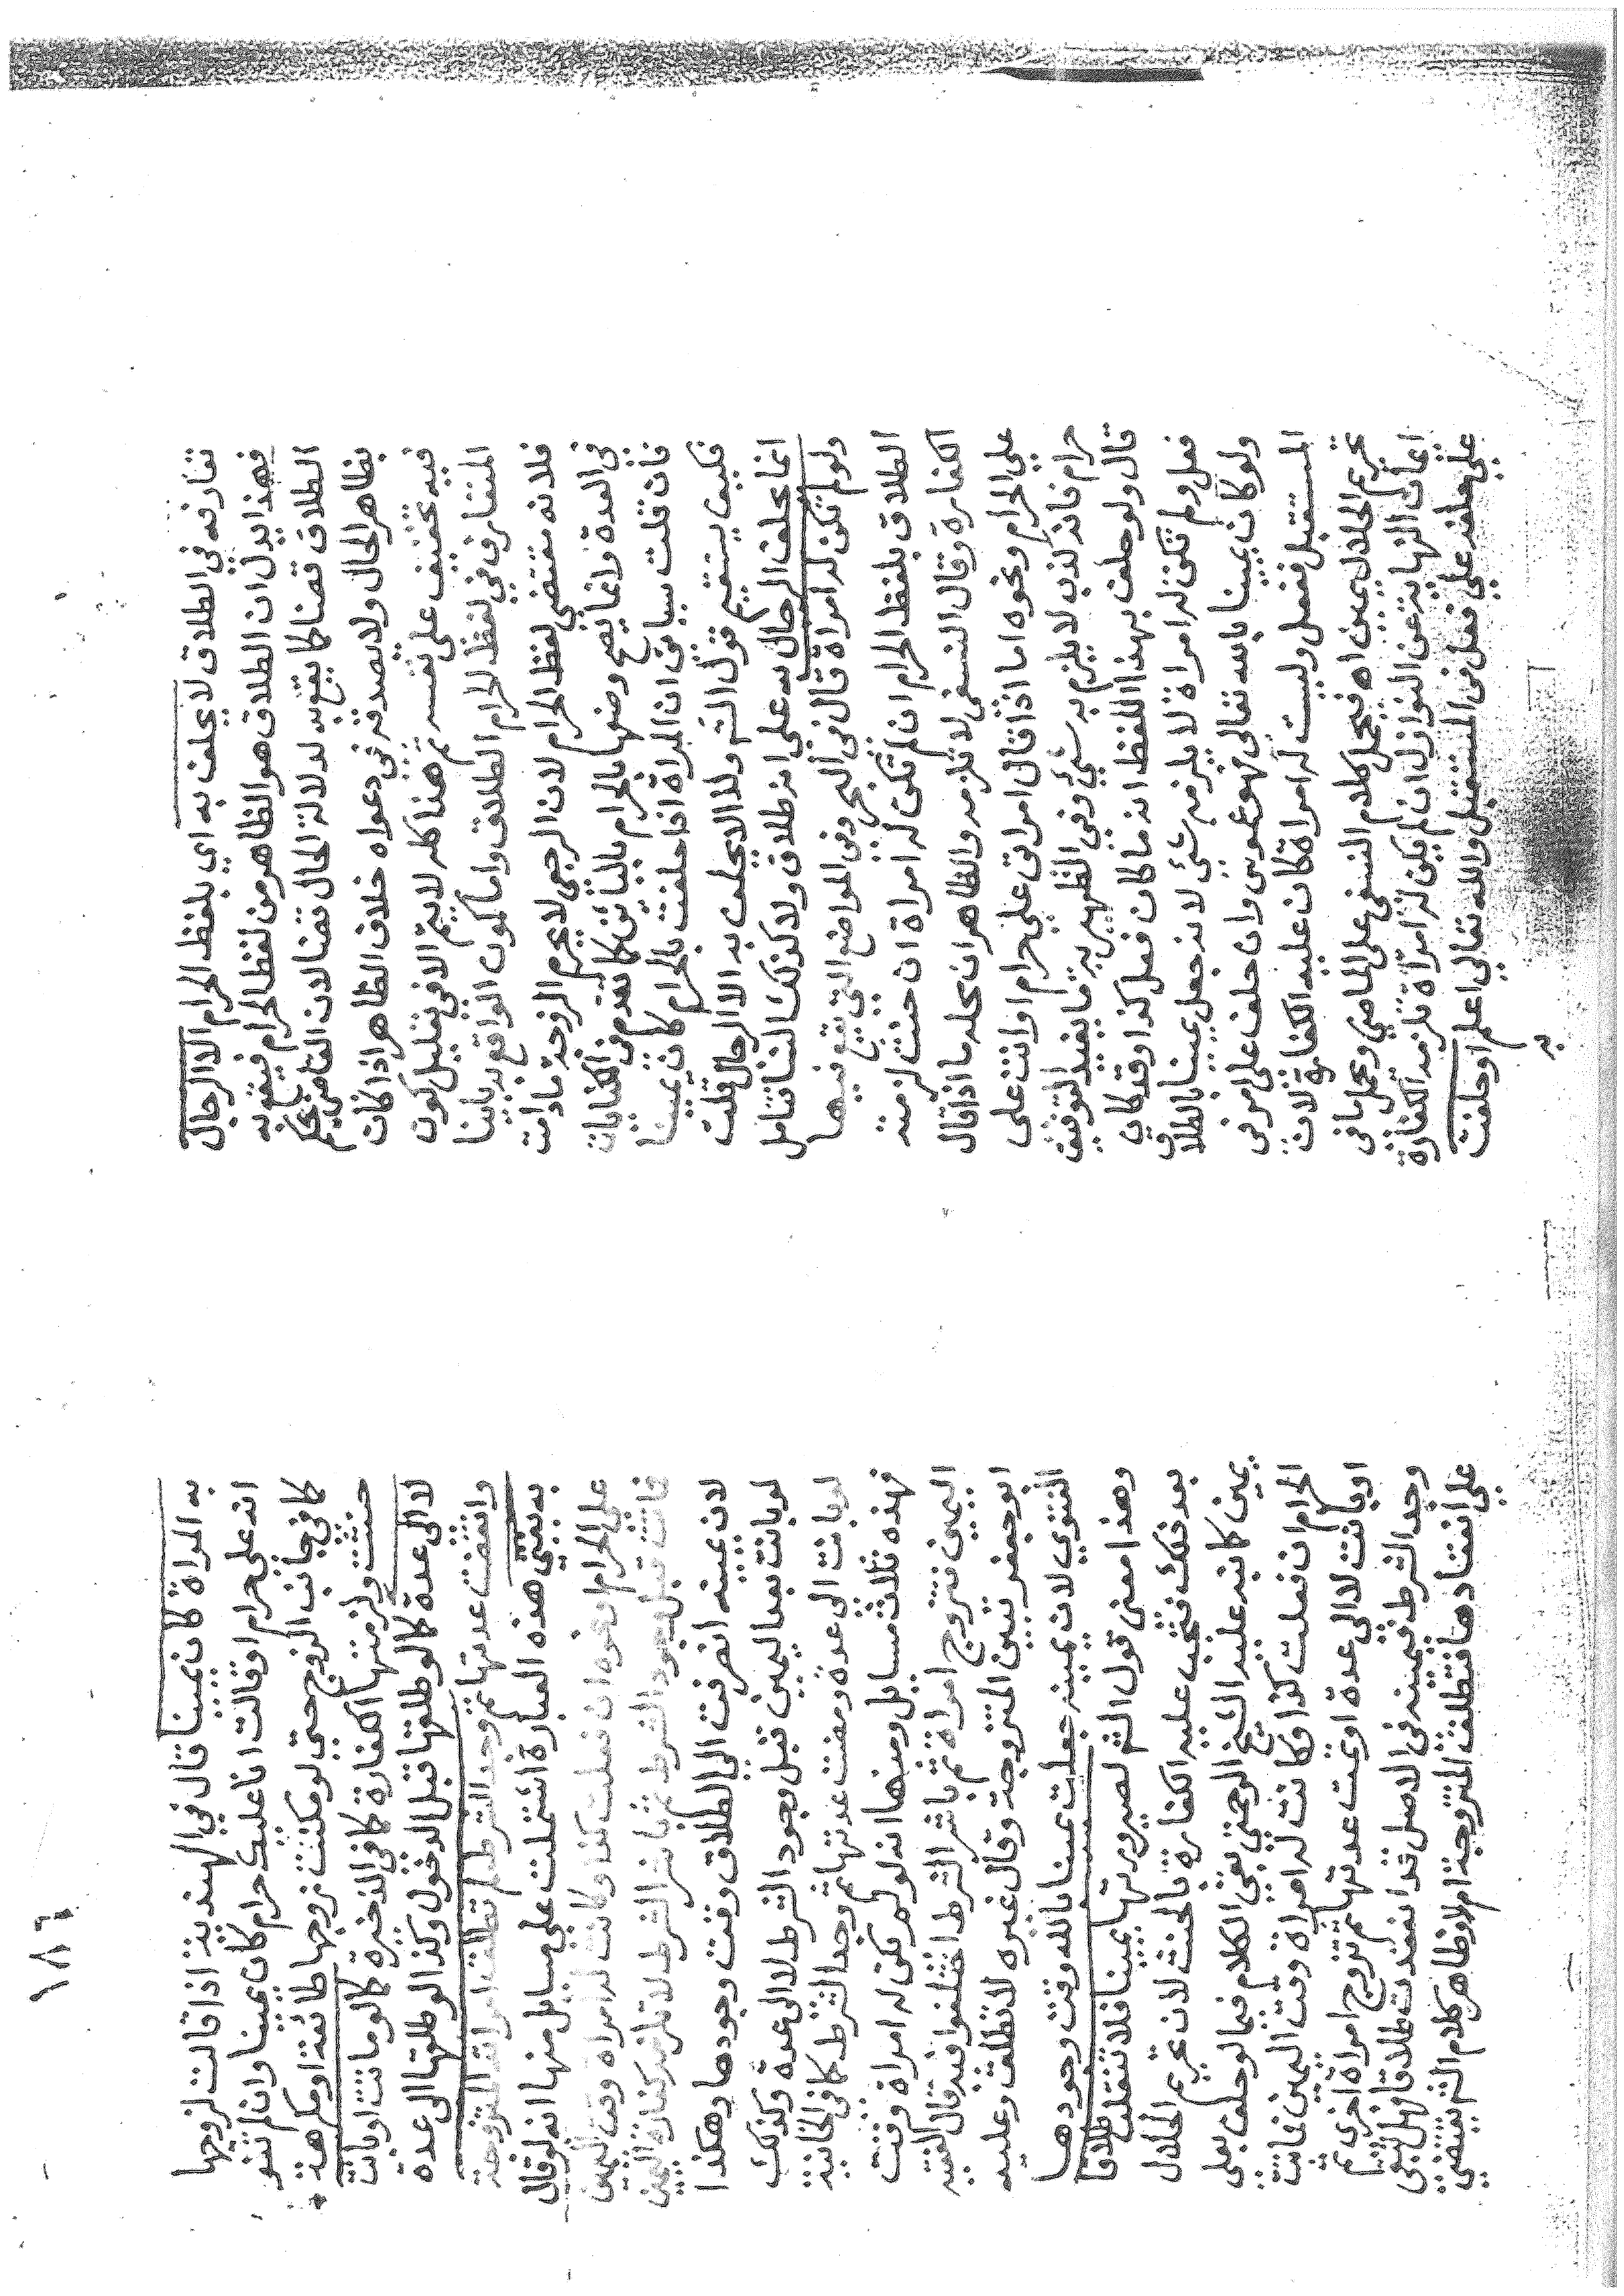 تعارفه في الطلاق لا يحلف به اي بلفظ الحرام الا الرجال
فهذا يدل ان الطلاق هو الظاهر من لفظ الحرام فيقع به
الطلاق قضا كما يقع به لدلالة الحال قضا لان القاضي يحكم
بظاهر الحال ولا يصدقه في دعواه خلاف الظاهر اذا كان
فيه تخفيف على نفسه ثم هذا كله لا يتم الا في تعليل كون
المتعارف في لفظ الحرام الطلاق واما كون الواقع به باينا
فلانه مقتضى لفظ الحرام لان الرجعي لا يحرم الزوجة ما دامت
في العدة وانما يصح وصفها بالحرام بالبائن كما تقدم في الكنايات
فان قلت سياتي ان المراة اذا حلفت بالحرام كان يمينا
فكيف يستقيم قول الشم ولذا لا يحلف به الا الرجال قلت
انما يحلف الرجال به على انه طلاق ولا كذلك النسا تامل
ولو لم تكن له امراة قال في البحر وفي المواضع التي يقع فيها
الطلاق بلفظ الحرام ان لم تكن له امراة ان حنث لزمته
الكفارة وقال النسفي لا تلزمه والظاهر ان محله ما اذا قال
علي الحرام ونحوه اما اذا قال امراتي علي حرام او انت علي
حرام فانه كذب لا يلزم به شيئ وفي الظهيرية ما يفيد التوفيق
قال ولو حلف بهذا اللفظ انه ما كان فعل كذا وقد كان
فعل ولم تكن له امراة لا يلزمه شيئ لانه جعل يمينا بالطلاق
ولو كان يمينا بالله تعالى فهو غموس وان حلف على امر في
المستقبل ففعل وليست له امراة كان عليه الكفارة لان
تحريم الحلال يمين اه فيحمل كلام النسفي على الماضي وحمل ما في
ايمان النهاية عن النوازل ان لم يكن له امراة تلزمه الكفارة
على حلفه على فعل في المستقبل والله تعالى اعلم او حلفت
به
١٨٦
به المراة كان يمينا قال في الهندية اذا قالت لزوجها
انه علي حرام او قالت انا عليك حرام كان يمينا وان لم تنو
كما في جانب الزوج حتى لو مكنت زوجها طائعة او مكرهة
حنثت ولزمتها الكفارة كما في الذخيرة كما لو ماتت او بانت
لا الى عدة كما لو طلقها قبل الدخول وكذا لو طلقها الى عدة
وانقضت عدتها ثم وجد الشرط لم تطلق امراته المتزوجة
به يفتى هذه العبارة اشتملت على مسايل منها انه لو قال
علي الحرام ونحوه ان فعلت كذا وكانت له امراة وقت اليمين
فماتت قبل وجود الشرط ثم باشر الشرط لا تلزمه كفارة اليمين
لان يمينه انصرفت الى الطلاق وقت وجودها وهكذا
لو بانت بعد اليمين قبل وجود الشرط لا الى عدة وكذلك
لو بانت الى عدة ومضت عدتها ثم وجد الشرط كما في الخانية
فهذه ثلاث مسايل ومنها انه لو لم تكن له امراة وقت
اليمين فتزوج امراة ثم باشر الشرط اختلفوا فيه قال الفقيه
ابو جعفر تبين المتزوجة وقال غيره لا تطلق وعليه
الفتوى لان يمينه جعلت يمينا بالله وقت وجودها
وهذا معنى قول الشم لصيرورتها يمينا فلا تنقلب طلاقا
بعد ذلك فتجب عليه الكفارة بالحنث لان تحريم الحلال
يمين كما نبه عليه الشيخ الرحمتي بقي الكلام فيما لو حلف بعلي
الحرام ان فعلت كذا وكانت له امراة وقت اليمين فماتت
او بانت لا الى عدة او تمت عدتها ثم تزوج امراة اخرى ثم
وجد الشرط فيمينه في الاصل قد انعقدت طلاقا فهل تبقى
على انعقادها فتطلق المتزوجة ام لا وظاهر كلام الشم يقتضي